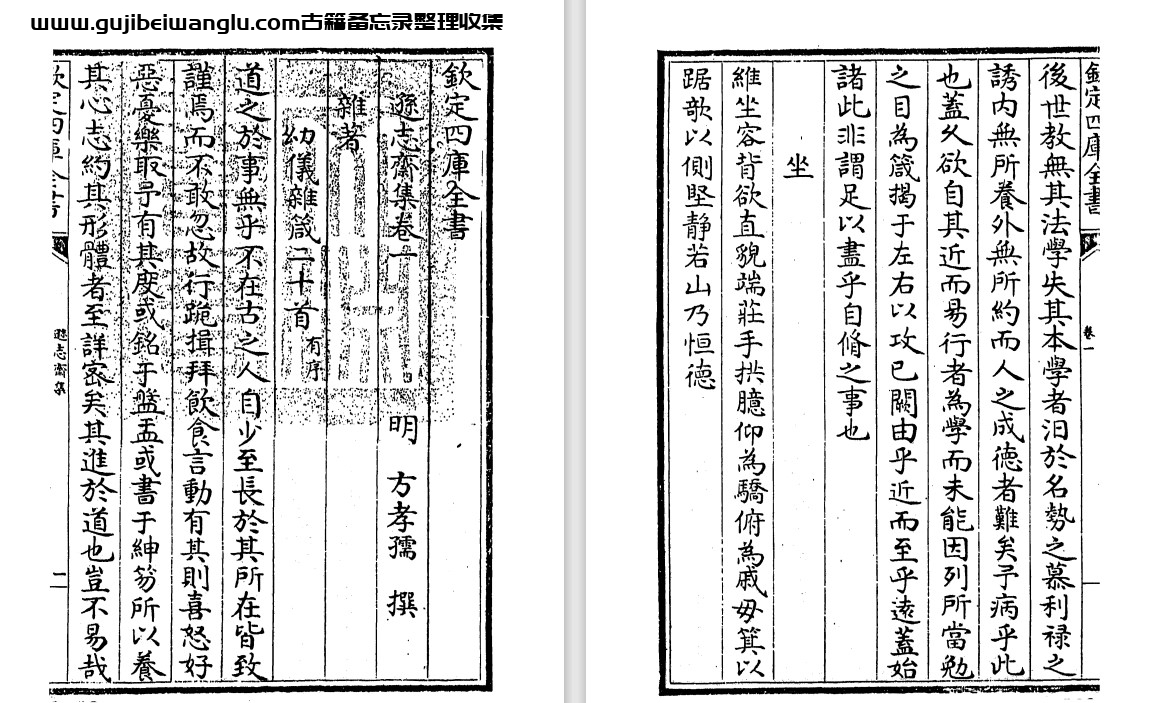 www.gujibeiwanglu.com古籍备忘录整理收集
欽定四庫全書
遜志齋集卷一　明　方孝孺　撰
雜著
幼儀雜箴二十首 有序
道之於事無乎不在古之人自少至長於其所在皆致
謹焉而不敢忽故行跪揖拜飲食言動有其則喜怒好
惡憂樂取予有其度或銘于盤盂或書于紳笏所以養
其心志約其形體者至詳密矣其進於道也豈不易哉
欽定四庫全書
遜志齋集
一
欽定四庫全書
卷一
後世教無其法學失其本學者汩於名勢之慕利禄之
誘内無所養外無所約而人之成德者難矣予病乎此
也葢久欲自其近而易行者為學而未能因列所當勉
之目為箴揭于左右以攻已闕由乎近而至乎逺葢始
諸此非謂足以盡乎自脩之事也
坐
維坐容背欲直貌端莊手拱臆仰為驕俯為戚毋箕以
踞欹以側堅静若山乃恒德